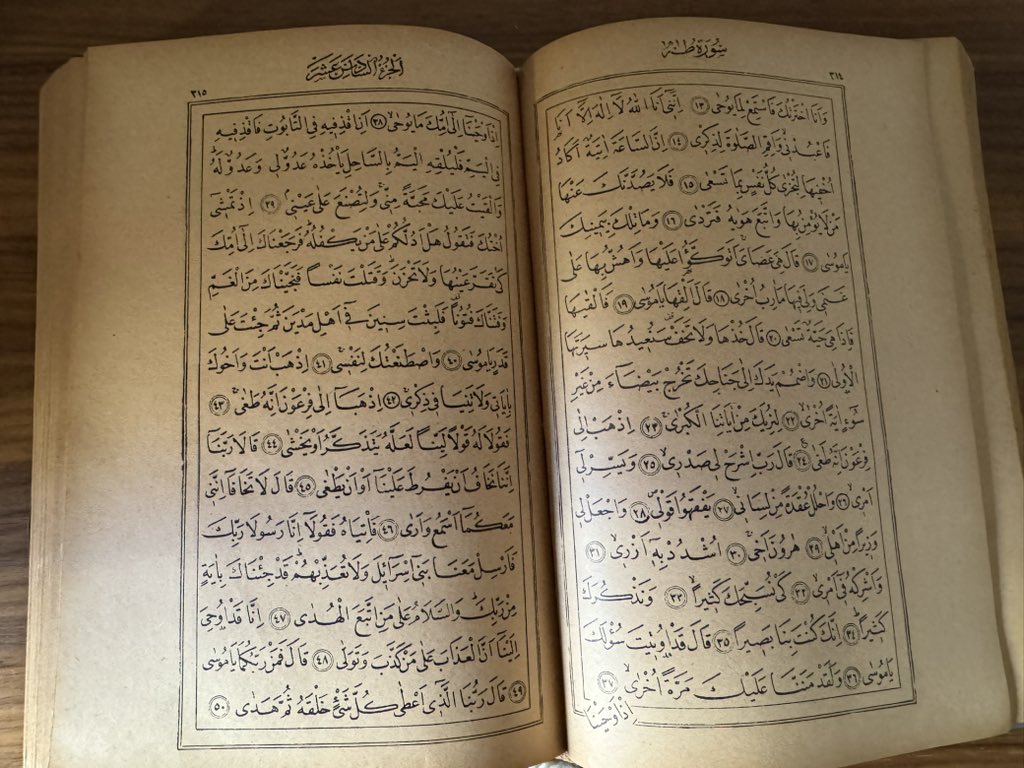 سورة طه
٣١٤
وَاَنَا اخْتَرْتُكَ فَاسْتَمِعْ لِمَا يُوحٰى ﴿١٣﴾ اِنَّنٖى اَنَا اللّٰهُ لَٓا اِلٰهَ اِلَّٓا اَنَا۬
فَاعْبُدْنٖى وَاَقِمِ الصَّلٰوةَ لِذِكْرٖى ﴿١٤﴾ اِنَّ السَّاعَةَ اٰتِيَةٌ اَكَادُ
اُخْفٖيهَا لِتُجْزٰى كُلُّ نَفْسٍ بِمَا تَسْعٰى ﴿١٥﴾ فَلَا يَصُدَّنَّكَ عَنْهَا
مَنْ لَا يُؤْمِنُ بِهَا وَاتَّبَعَ هَوٰيهُ فَتَرْدٰى ﴿١٦﴾ وَمَا تِلْكَ بِيَمٖينِكَ
يَا مُوسٰى ﴿١٧﴾ قَالَ هِىَ عَصَاىَ اَتَوَكَّؤُ۬ا عَلَيْهَا وَاَهُشُّ بِهَا عَلٰى
غَنَمٖى وَلِىَ فٖيهَا مَاٰرِبُ اُخْرٰى ﴿١٨﴾ قَالَ اَلْقِهَا يَا مُوسٰى ﴿١٩﴾ فَاَلْقٰيهَا
فَاِذَا هِىَ حَيَّةٌ تَسْعٰى ﴿٢٠﴾ قَالَ خُذْهَا وَلَا تَخَفْ سَنُعٖيدُهَا سٖيرَتَهَا
الْاُو۫لٰى ﴿٢١﴾ وَاضْمُمْ يَدَكَ اِلٰى جَنَاحِكَ تَخْرُجْ بَيْضَٓاءَ مِنْ غَيْرِ
سُٓوءٍ اٰيَةً اُخْرٰى ﴿٢٢﴾ لِنُرِيَكَ مِنْ اٰيَاتِنَا الْكُبْرٰى ﴿٢٣﴾ اِذْهَبْ اِلٰى
فِرْعَوْنَ اِنَّهُ طَغٰى ﴿٢٤﴾ قَالَ رَبِّ اشْرَحْ لٖى صَدْرٖى ﴿٢٥﴾ وَيَسِّرْ لٖٓى
اَمْرٖى ﴿٢٦﴾ وَاحْلُلْ عُقْدَةً مِنْ لِسَانٖى ﴿٢٧﴾ يَفْقَهُوا قَوْلٖى ﴿٢٨﴾ وَاجْعَلْ لٖى
وَزٖيرًا مِنْ اَهْلٖى ﴿٢٩﴾ هٰرُونَ اَخٖى ﴿٣٠﴾ اُشْدُدْ بِهٖٓ اَزْرٖى ﴿٣١﴾
وَاَشْرِكْهُ فٖٓى اَمْرٖى ﴿٣٢﴾ كَىْ نُسَبِّحَكَ كَثٖيرًا ﴿٣٣﴾ وَنَذْكُرَكَ
كَثٖيرًا ﴿٣٤﴾ اِنَّكَ كُنْتَ بِنَا بَصٖيرًا ﴿٣٥﴾ قَالَ قَدْ اُو۫تٖيتَ سُؤْلَكَ
يَا مُوسٰى ﴿٣٦﴾ وَلَقَدْ مَنَنَّا عَلَيْكَ مَرَّةً اُخْرٰى ﴿٣٧﴾
اِذْ اَوْحَيْنَٓا
الجزء السادس عشر
٣١٥
اِذْ اَوْحَيْنَٓا اِلٰٓى اُمِّكَ مَا يُوحٰى ﴿٣٨﴾ اَنِ اقْذِفٖيهِ فِى التَّابُوتِ فَاقْذِفٖيهِ
فِى الْيَمِّ فَلْيُلْقِهِ الْيَمُّ بِالسَّاحِلِ يَاْخُذْهُ عَدُوٌّ لٖى وَعَدُوٌّ لَهُ
وَاَلْقَيْتُ عَلَيْكَ مَحَبَّةً مِنّٖى وَلِتُصْنَعَ عَلٰى عَيْنٖى ﴿٣٩﴾ اِذْ تَمْشٖٓى
اُخْتُكَ فَتَقُولُ هَلْ اَدُلُّكُمْ عَلٰى مَنْ يَكْفُلُهُ فَرَجَعْنَاكَ اِلٰٓى اُمِّكَ
كَىْ تَقَرَّ عَيْنُهَا وَلَا تَحْزَنَ وَقَتَلْتَ نَفْسًا فَنَجَّيْنَاكَ مِنَ الْغَمِّ
وَفَتَنَّاكَ فُتُونًا فَلَبِثْتَ سِنٖينَ فٖٓى اَهْلِ مَدْيَنَ ثُمَّ جِئْتَ عَلٰى
قَدَرٍ يَا مُوسٰى ﴿٤٠﴾ وَاصْطَنَعْتُكَ لِنَفْسٖى ﴿٤١﴾ اِذْهَبْ اَنْتَ وَاَخُوكَ
بِاٰيَاتٖى وَلَا تَنِيَا فٖى ذِكْرٖى ﴿٤٢﴾ اِذْهَبَٓا اِلٰى فِرْعَوْنَ اِنَّهُ طَغٰى ﴿٤٣﴾
فَقُولَا لَهُ قَوْلًا لَيِّنًا لَعَلَّهُ يَتَذَكَّرُ اَوْ يَخْشٰى ﴿٤٤﴾ قَالَا رَبَّنَٓا
اِنَّنَا نَخَافُ اَنْ يَفْرُطَ عَلَيْنَٓا اَوْ اَنْ يَطْغٰى ﴿٤٥﴾ قَالَ لَا تَخَافَٓا اِنَّنٖى
مَعَكُمَٓا اَسْمَعُ وَاَرٰى ﴿٤٦﴾ فَاْتِيَاهُ فَقُولَٓا اِنَّا رَسُولَا رَبِّكَ
فَاَرْسِلْ مَعَنَا بَنٖٓى اِسْرَٓائٖلَ وَلَا تُعَذِّبْهُمْ قَدْ جِئْنَاكَ بِاٰيَةٍ
مِنْ رَبِّكَ وَالسَّلَامُ عَلٰى مَنِ اتَّبَعَ الْهُدٰى ﴿٤٧﴾ اِنَّا قَدْ اُو۫حِىَ
اِلَيْنَٓا اَنَّ الْعَذَابَ عَلٰى مَنْ كَذَّبَ وَتَوَلّٰى ﴿٤٨﴾ قَالَ فَمَنْ رَبُّكُمَا يَا مُوسٰى
﴿٤٩﴾ قَالَ رَبُّنَا الَّذٖٓى اَعْطٰى كُلَّ شَىْءٍ خَلْقَهُ ثُمَّ هَدٰى ﴿٥٠﴾